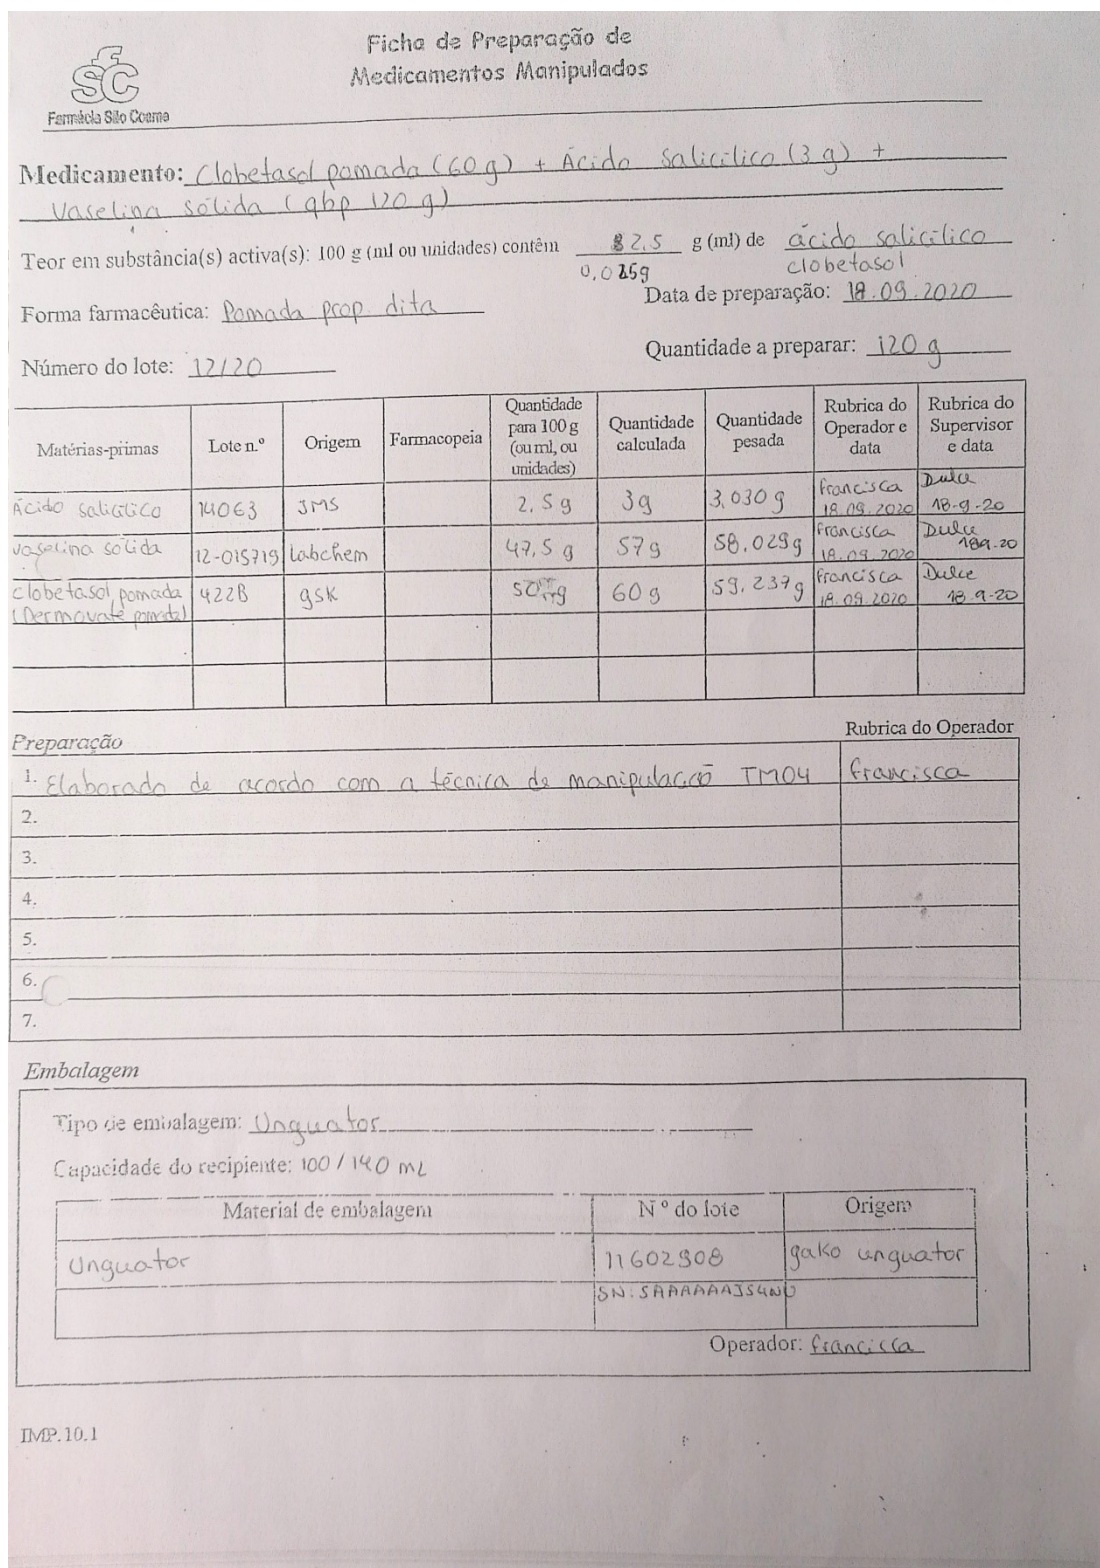 Ficha de Preparação de
Medicamentos Manipulados
Farmácia São Cosme
Medicamento: Clobetasol pomada (60 g) + Ácido Salicílico (3 g) +
Vaselina sólida (qbp 120 g)
Teor em substância(s) activa(s): 100 g (ml ou unidades) contêm 2,5 g (ml) de ácido salicílico
0,025g clobetasol
Forma farmacêutica: Pomada prop. dita
Data de preparação: 18.09.2020
Número do lote: 12/20
Quantidade a preparar: 120 g
Matérias-primas Lote n.º Origem Farmacopeia Quantidade para 100 g (ou ml, ou unidades) Quantidade calculada Quantidade pesada Rubrica do Operador e data Rubrica do Supervisor e data
Ácido Salicílico 14063 JMS 2,5 g 3g 3,030 g Francisca 18.09.2020 Dulce 18.9.20
Vaselina sólida 12-015719 Labchem 47,5 g 57g 58,029g Francisca 18.09.2020 Dulce 18.9.20
Clobetasol pomada (Dermovate pomada) 422B gsk 50 g 60 g 59,237g Francisca 18.09.2020 Dulce 18.9.20
Preparação
Rubrica do Operador
1. Elaborado de acordo com a técnica de manipulação TM04 Francisca
2.
3.
4.
5.
6.
7.
Embalagem
Tipo de embalagem: Unguator
Capacidade do recipiente: 100 / 140 mL
Material de embalagem N.º do lote Origem
Unguator 11602908 gako unguator
Operador: Francisca
IMP.10.1